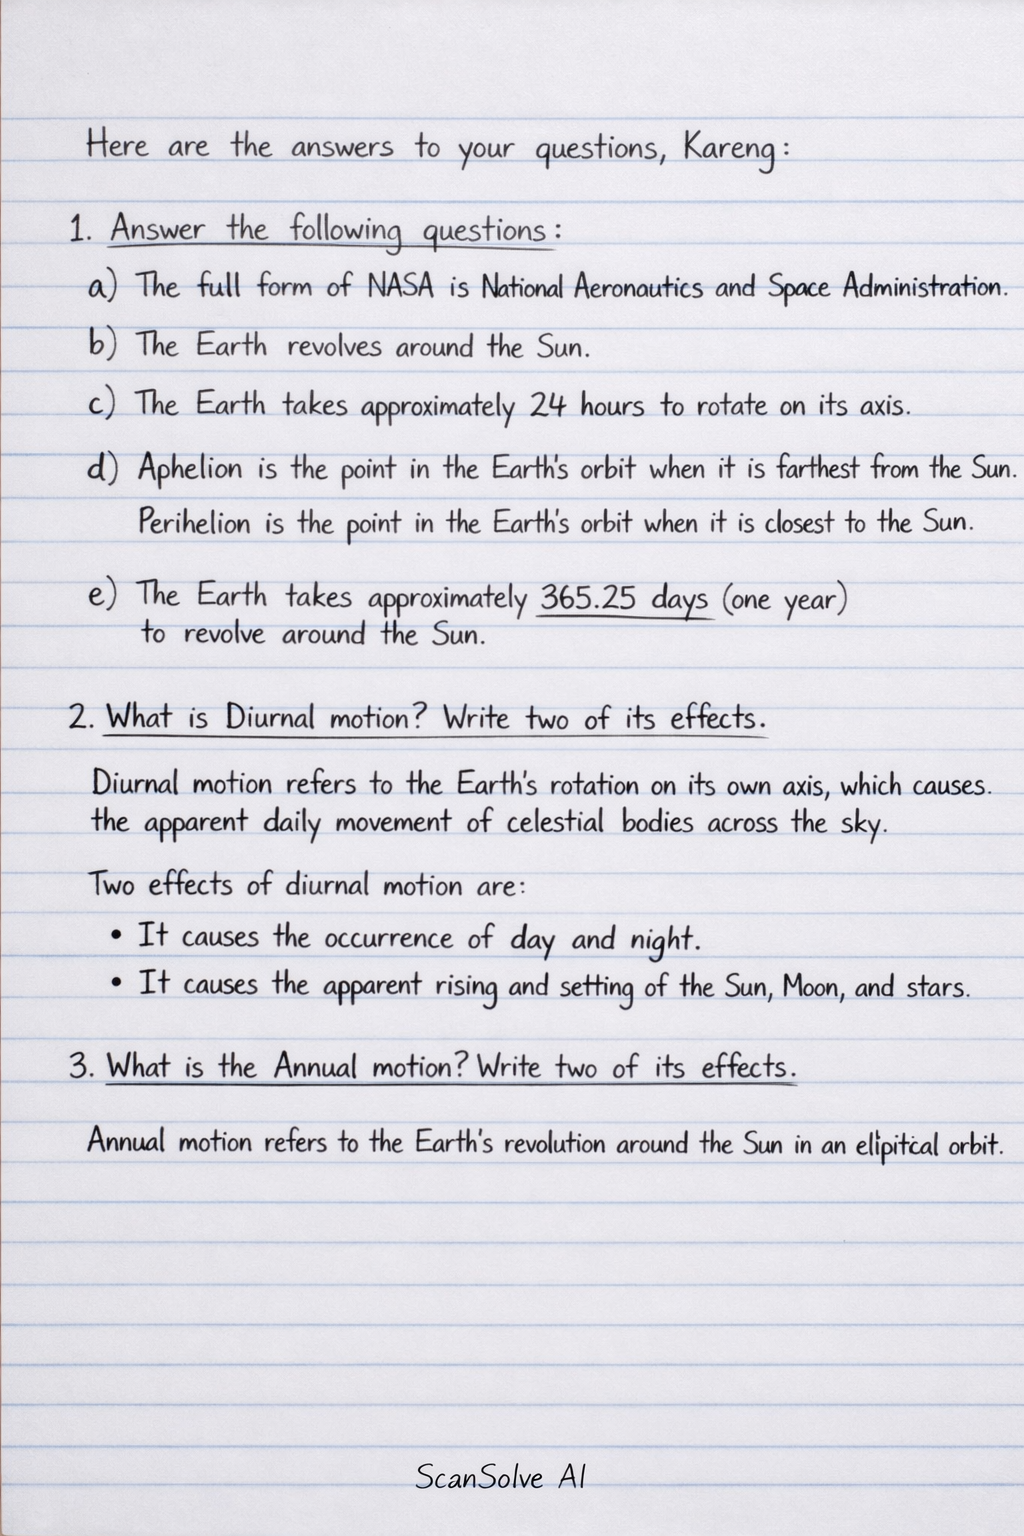 Here are the answers to your questions, Kareng:
1. Answer the following questions:
a) The full form of NASA is National Aeronautics and Space Administration.
b) The Earth revolves around the Sun.
c) The Earth takes approximately 24 hours to rotate on its axis.
d) Aphelion is the point in the Earth's orbit when it is farthest from the Sun.
Perihelion is the point in the Earth's orbit when it is closest to the Sun.
e) The Earth takes approximately 365.25 days (one year)
to revolve around the Sun.
2. What is Diurnal motion? Write two of its effects.
Diurnal motion refers to the Earth's rotation on its own axis, which causes.
the apparent daily movement of celestial bodies across the sky.
Two effects of diurnal motion are:
• It causes the occurrence of day and night.
• It causes the apparent rising and setting of the Sun, Moon, and stars.
3. What is the Annual motion? Write two of its effects.
Annual motion refers to the Earth's revolution around the Sun in an elipitcal orbit.
ScanSolve AI